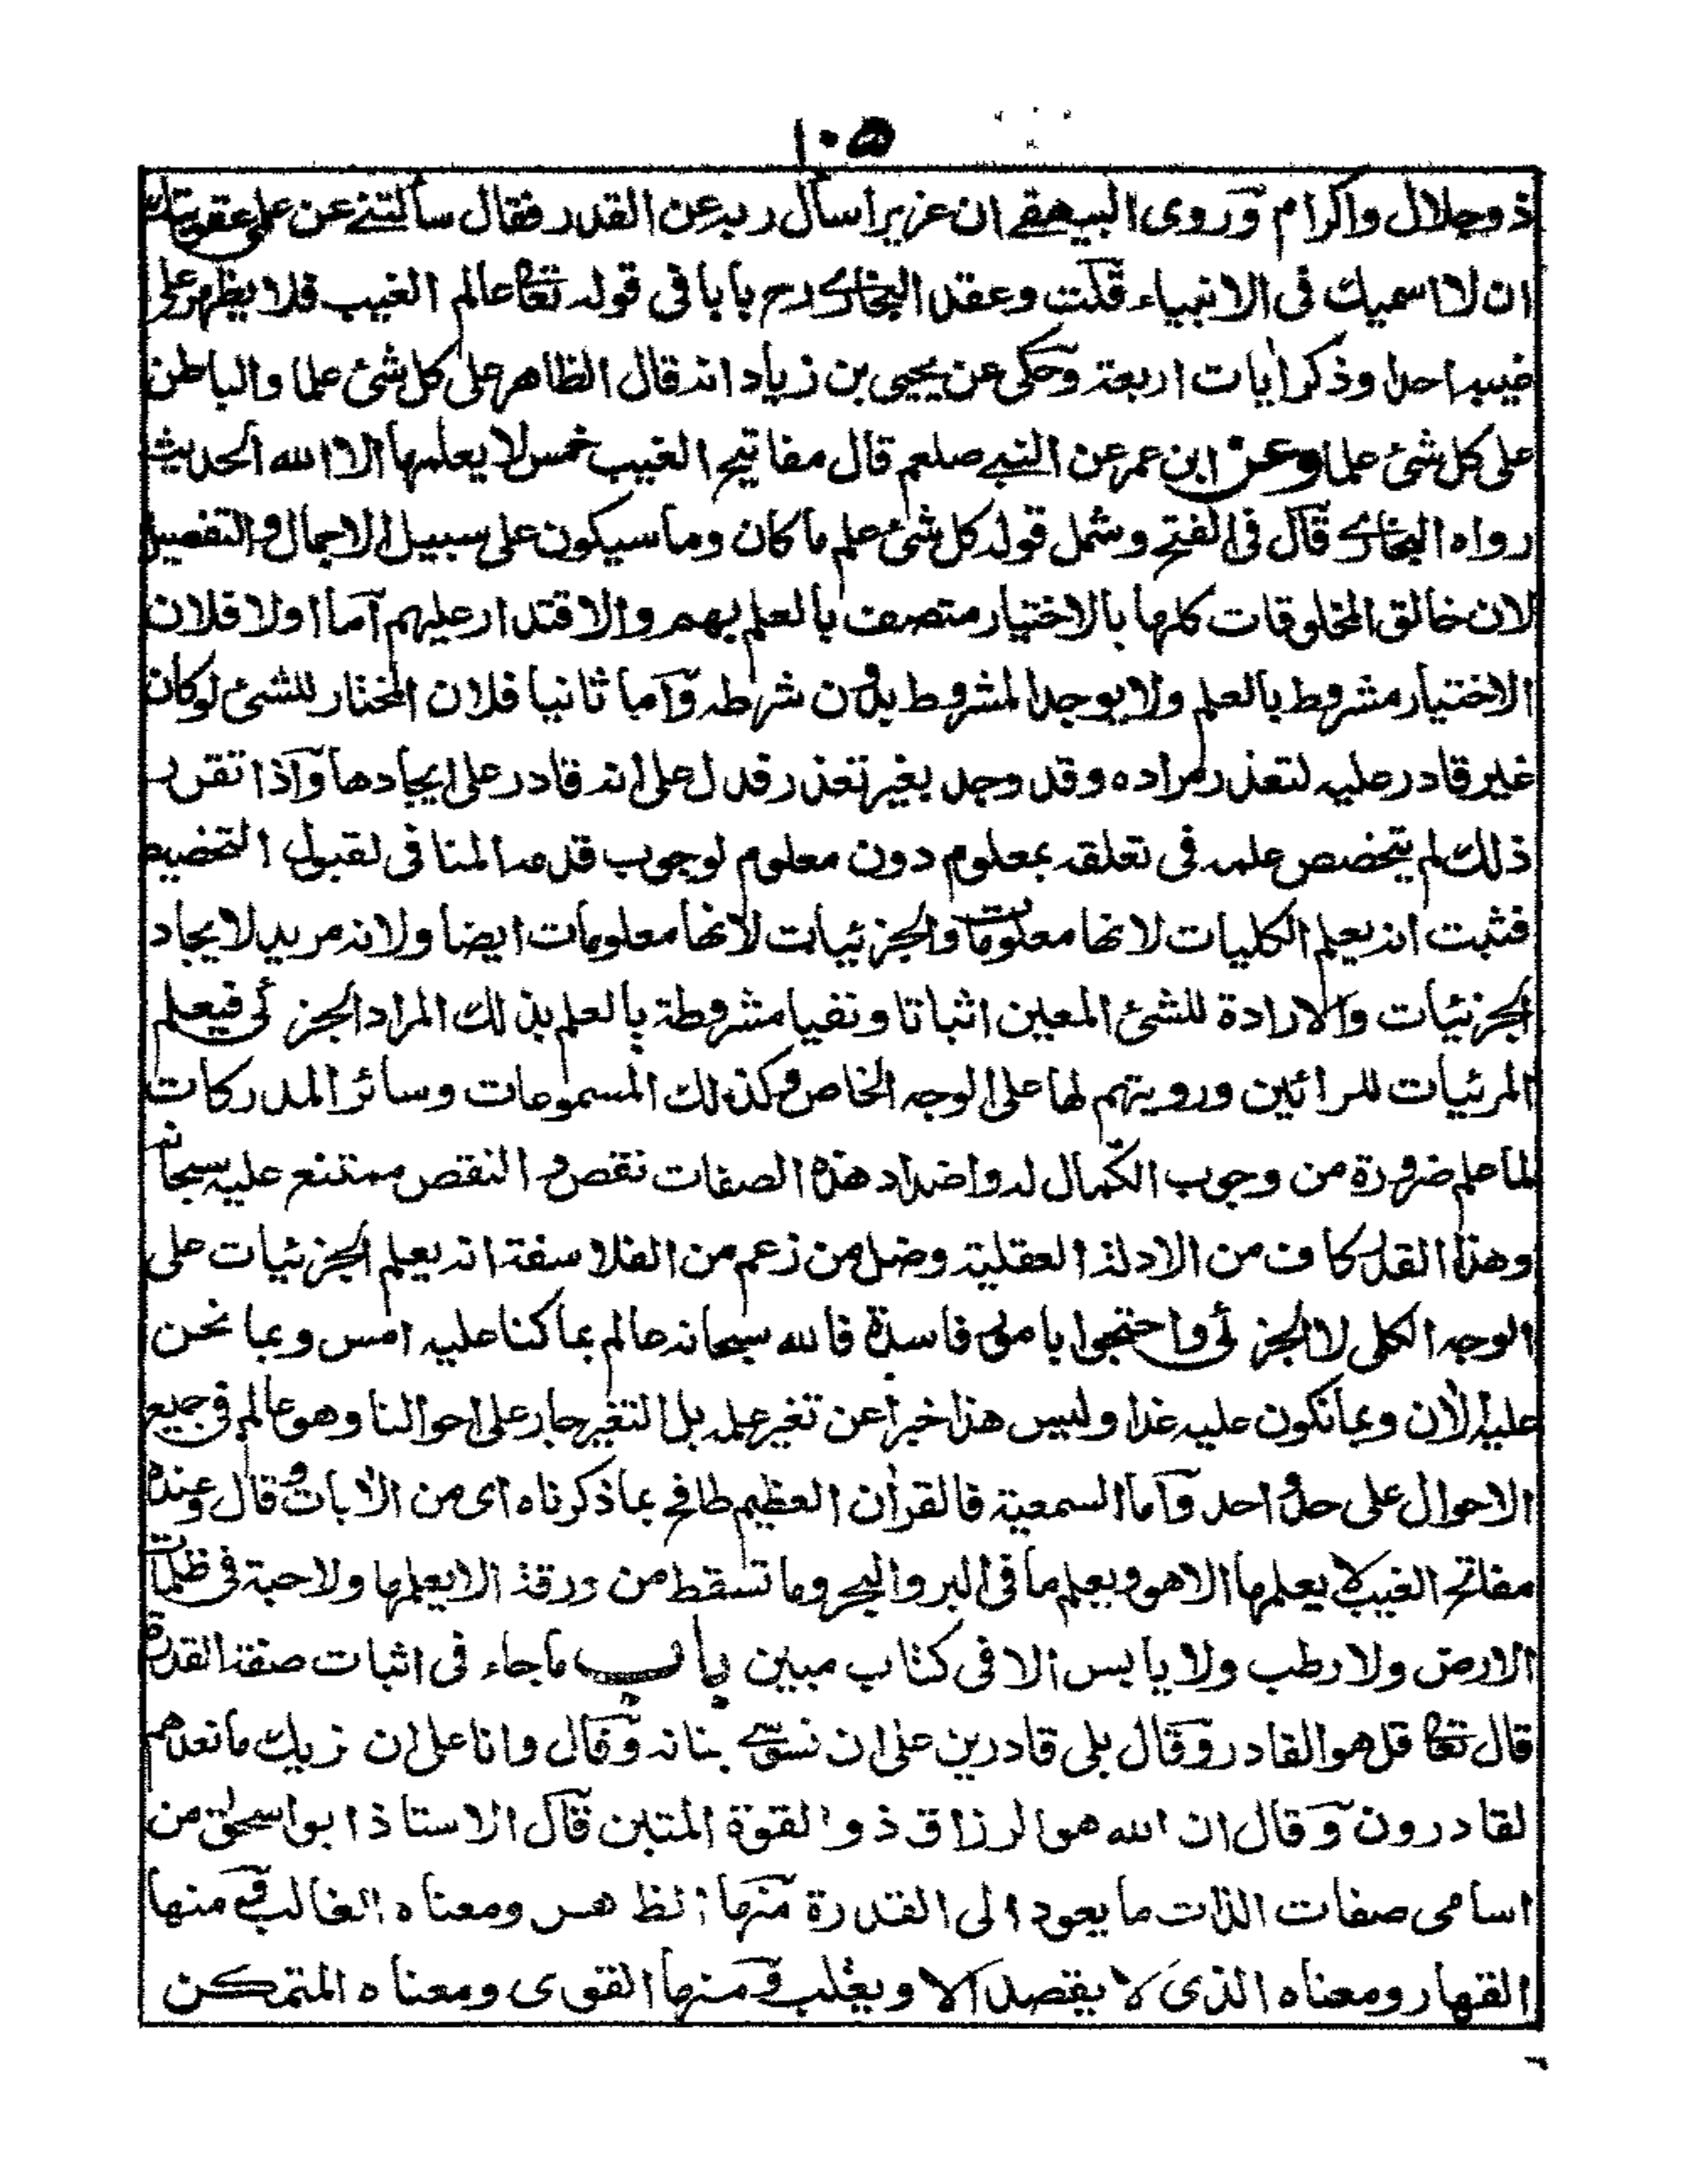 ١٠٥
ذو جلال واكرام وروى البيهقے ان عزيرا سأل ربه عن القدر فقال سألتنے عن علمی عقوبتك
ان لا اسميك فى الانبياء قلت وعقد البخارے رح بابا فى قوله تعا عالم الغيب فلا يظهر علی
غيبه احدا وذكر اٰيات اربعة وحكى عن يحيى بن زياد انه قال الظاهر على كل شئ علما والباطن
على كل شئ علما وعن ابن عمر عن النبے صلعم قال مفاتيح الغيب خمس لا يعلمها الا الله الحديث
رواه البخارے قال فى الفتح وشمل قوله كل شئ علم ما كان وما سيكون على سبيل الاجمال والتفصيل
لان خالق المخلوقات كلها بالاختيار متصف بالعلم بهم والاقتدار عليهم اما اولا فلان
الاختيار مشروط بالعلم ولا يوجد المشروط بدون شرطه واما ثانيا فلان المختار للشئ لوكان
غير قادر عليه لتعذر مراده وقد وجد بغير تعذر فدل على انه قادر على ايجادها واذا تقرر
ذلك لم يتخصص علمه فى تعلقه بمعلوم دون معلوم لوجوب قدمه المنافى لقبول التخصيص
فثبت انه يعلم الكليات لانها معلومات والجزئيات لانها معلومات ايضا ولانه مريد لايجاد
الجزئيات والارادة للشئ المعين اثباتا ونفيا مشروطة بالعلم بذلك المراد الجزئى فيعلم
المرئيات للرائين ورويتهم لها على الوجه الخاص وكذلك المسموعات وسائر المدركات
لما علم ضرورة من وجوب الكمال له واضداد هذه الصفات نقص و النقص ممتنع عليه سبحانه
وهذا القدر كاف من الادلة العقلية وضل من زعم من الفلاسفة انه يعلم الجزئيات على
الوجه الكلى لا الجزئى واحتجوا بامور فاسدة فالله سبحانه عالم بما كنا عليه امس وبما نحن
عليه الاٰن وبما نكون عليه غدا وليس هذا خبرا عن تغير علمه بل التغير جار على احوالنا وهو عالم فى جميع
الاحوال على حد واحد واما السمعية فالقراٰن العظيم طافح بما ذكرناه اى من الاٰيات وقال وعنده
مفاتح الغيب لا يعلمها الا هو ويعلم ما فى البر والبحر وما تسقط من ورقة الا يعلمها ولا حبة فى ظلمات
الارض ولا رطب ولا يابس الا فى كتاب مبين باب ماجاء فى اثبات صفة القدرة
قال تعا قل هو القادر وقال بلى قادرين على ان نسوّے بنانه وقال وانا على ان نريك ما نعدهم
لقادرون وقال ان الله هو الرزاق ذو القوة المتين قال الاستاذ ابو اسحٰق من
اسامى صفات الذات ما يعود الى القدرة منها القاهر ومعناه الغالب ومنها
القهار ومعناه الذى لا يقصد الا ويغلب ومنها القوى ومعناه المتمكن